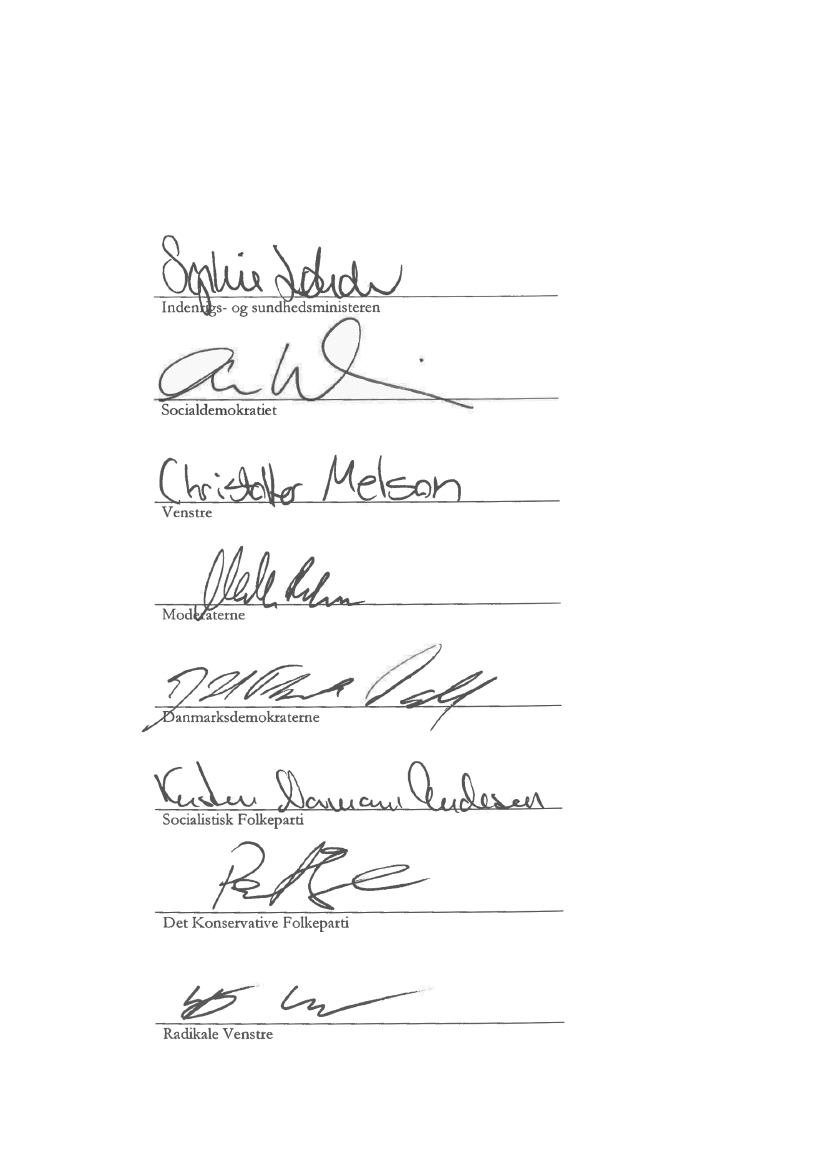 Sophie Løhde
Indenrigs- og sundhedsministeren
Socialdemokratiet
Christoffer Melson
Venstre
Moderaterne
Danmarksdemokraterne
Kirsten Normann Andersen
Socialistisk Folkeparti
Per
Det Konservative Folkeparti
Radikale Venstre